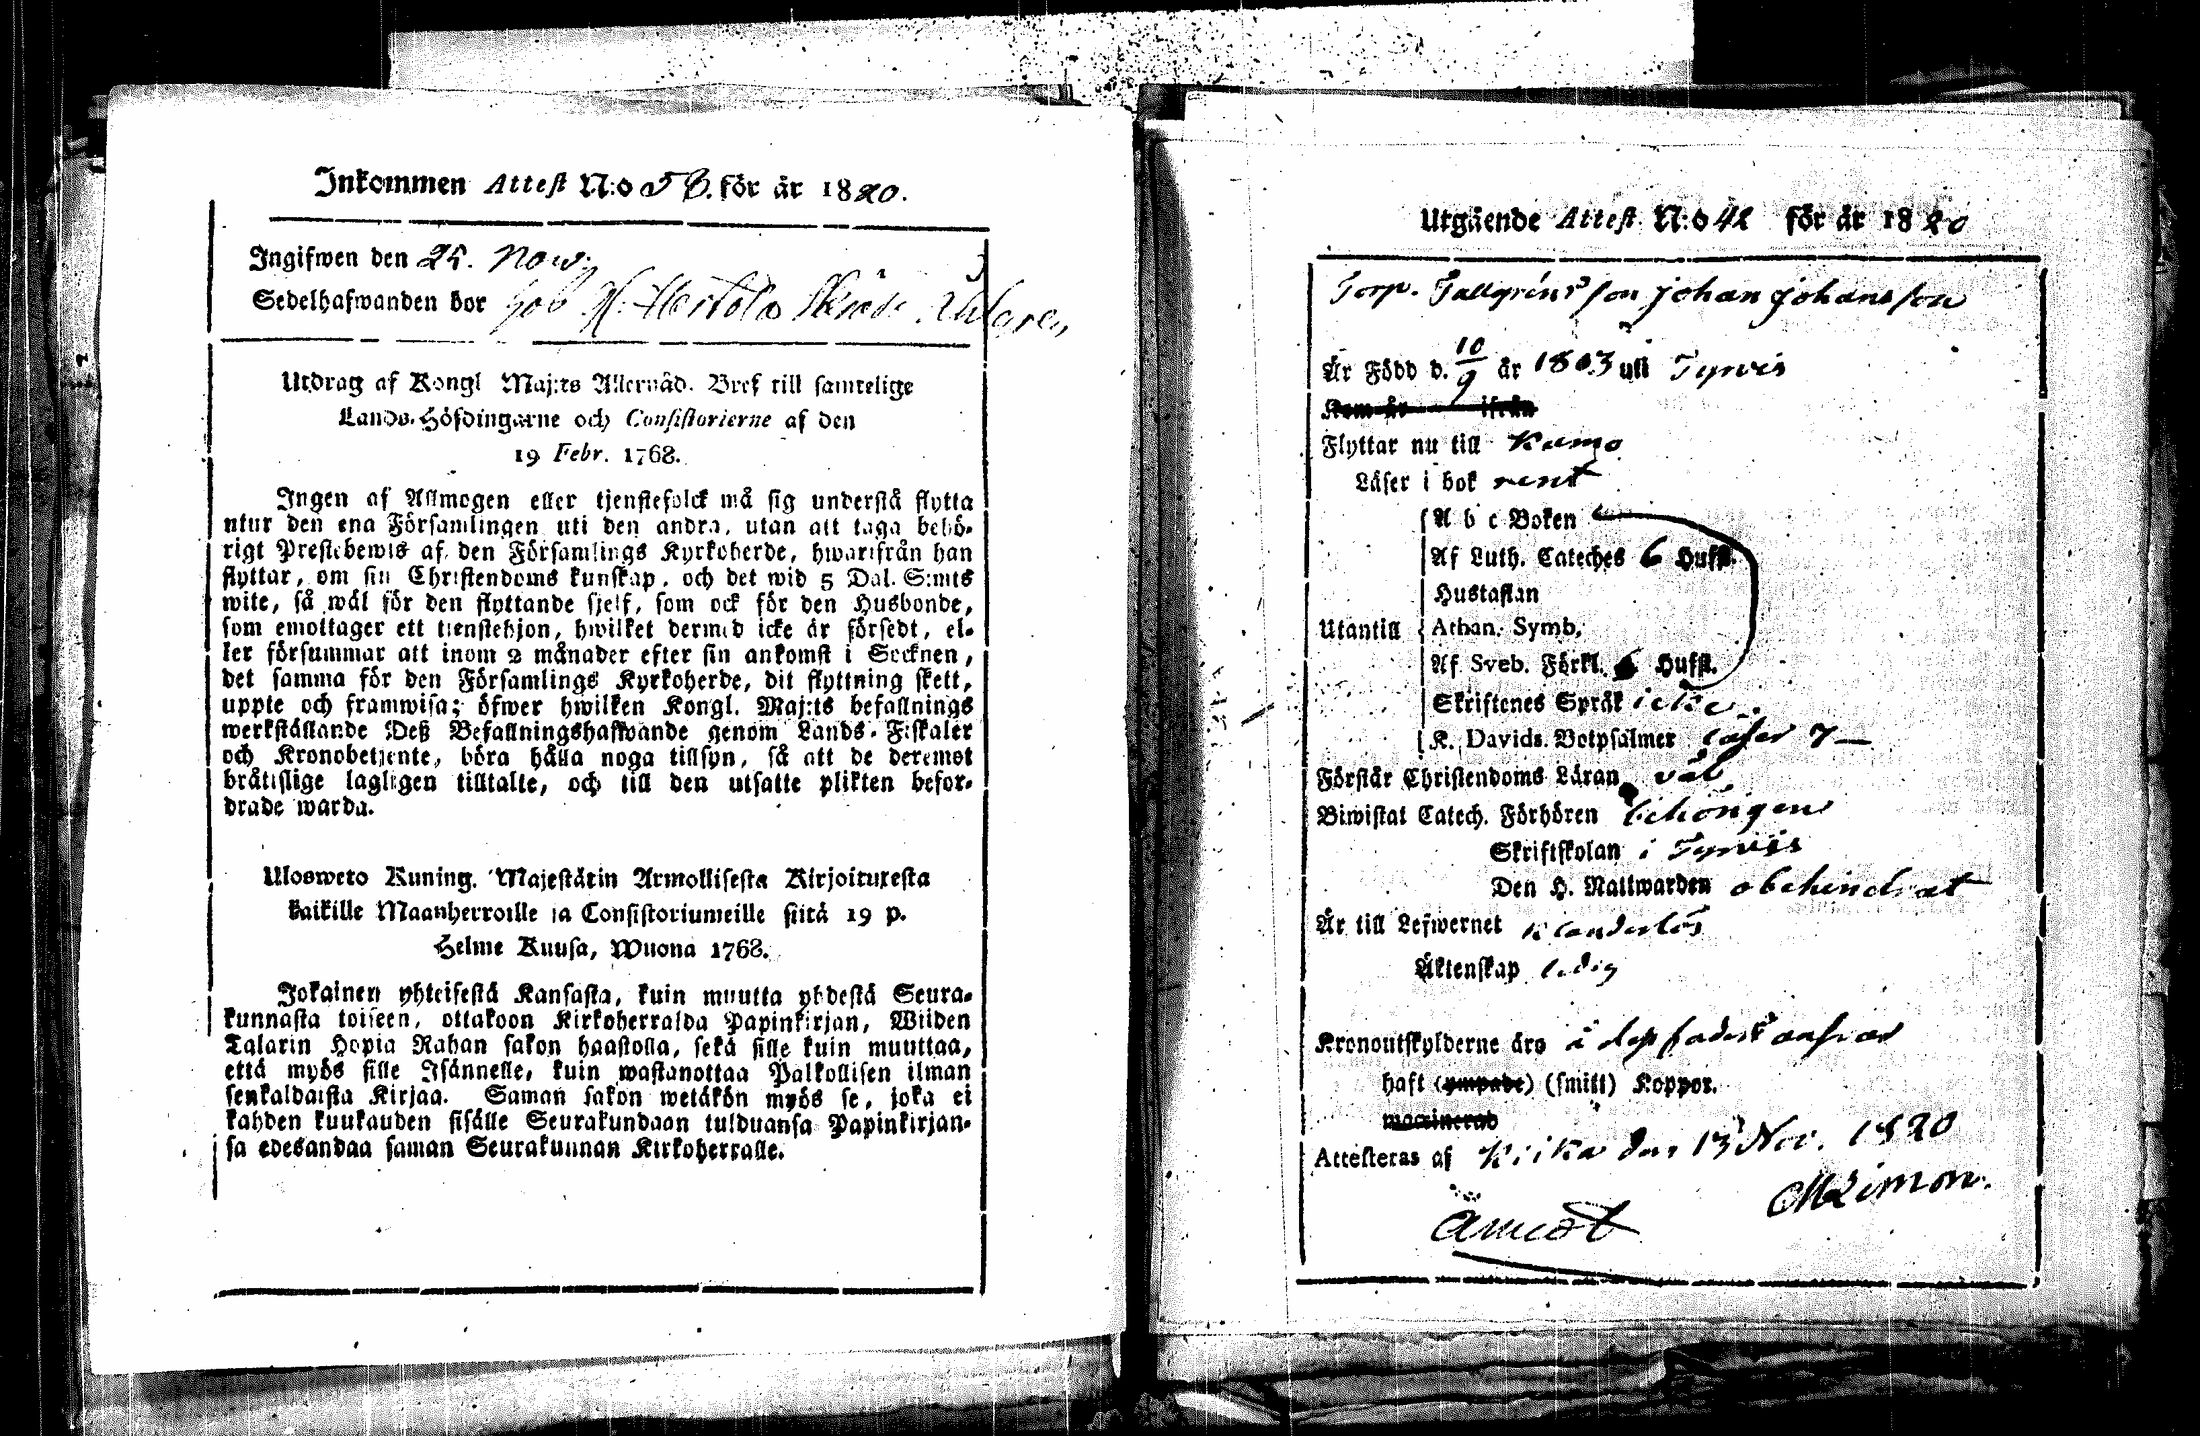 Inkommen Attest N:o 58. för år 1820.
Ingifwen den 25. Nov:
Sedelhafwanden bor hos
Utdrag af Kongl Maj:ts Allernåd. Bref till samtelige
Lands-Höfdingarne och Consistorierne af den
19 Febr. 1768.
Ingen af Allmogen eller tjenstefolck må sig understå flytta
utur den ena Församlingen uti den andra, utan att taga behö-
rigt Prestebewis af den Församlings Kyrkoherde, hwarifrån han
flyttar, om sin Christendoms kunskap, och det wid 5 Dal. S:mts
wite, så wäl för den flyttande sjelf, som ock för den Husbonde,
som emottager ett tienstehjon, hwilket dermed icke är försedt, el-
ler försummar att inom 2 månader efter sin ankomst i Socknen,
det samma för den Församlings Kyrkoherde, dit flyttning skett,
uppte och framwisa; öfwer hwilken Kongl. Maj:ts befallnings
werkställande Deß Befallningshafwande genom Lands-Fiskaler
och Kronobetjente, böra hålla noga tillsyn, så att de deremot
bråtislige lagligen tilltalte, och till den utsatte plikten befor-
drade warda.
Ulosweto Kuning. Majestätin Armollisesta Kirjoituxesta
kaikille Maanherroille ja Consistoriumeille siitä 19 p.
Helme Kuusa, Wuona 1768.
Jokainen yhteisestä Kansasta, kuin muutta yhdestä Seura-
kunnasta toiseen, ottakoon Kirkoherralda Papinkirjan, Wiiden
Talarin Hopia Rahan sakon haastolla, sekä sille kuin muuttaa,
että myös sille Isännelle, kuin wastanottaa Palkollisen ilman
senkaldaista Kirjaa. Saman sakon wetäkön myös se, joka ei
kahden kuukauden sisälle Seurakundaan tulduansa Papinkirjan-
sa edesandaa saman Seurakunnan Kirkoherralle.
Utgående Attest N:o 42 för år 1820
Torp. Tallgréns son Johan Johansson
Är Född d. 10/9 år 1803 uti Tyrvis
Kom år ifrån
Flyttar nu till Kumo
Läser i bok rent
A b c Boken
Af Luth. Cateches 6 Hufst.
Hustaflan
Utantill Athan. Symb.
Af Sveb. Förkl. 6 Hufst.
Skriftenes Språk icke
K. Davids Botpsalmer läser 7—
Förstår Christendoms Läran väl
Biwistat Catech. Förhören behörigen
Skriftskolan i Tyrvis
Den H. Nattwarden obehindrat
Är till Lefwernet klanderlös
Äktenskap ledig
Kronoutskylderne äro å dess faders ansvar
haft (ympade) (smitt) Koppor.
vaccinerad
Attesteras af Kiika den 13 Nov. 1820